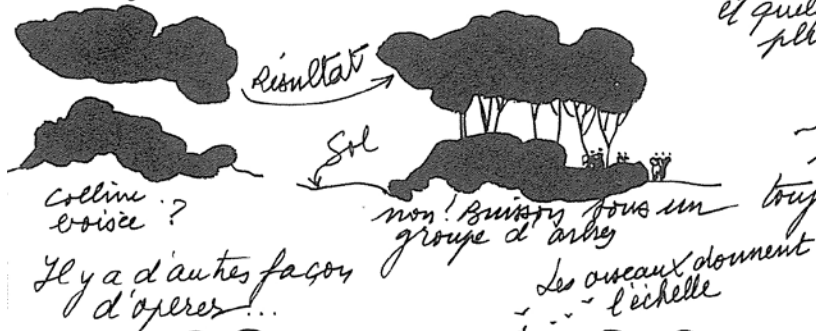 et quel
Résultat
Sol
colline
boisée ?
non! Buisson sous un
groupe d'arbres
Il y a d'autres façon
d'opérer...
Les oiseaux donnent
l'échelle